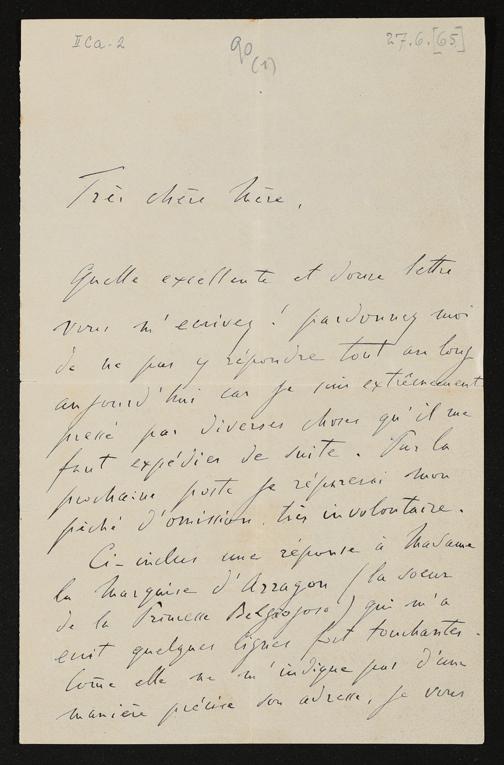 IICa-2
90
(1)
27.6.[65]
Très chère Mère,
Quelle excellente et douce lettre
vous m'écrivez! pardonnez moi
de ne pas y répondre tout au long
aujourd'hui car je suis extrêmement
pressé par diverses choses qu'il me
faut expédier de suite. Par la
prochaine poste je réparerai mon
péché d'omission très involontaire.
Ci-inclus une réponse à Madame
la Marquise d'Arragon (la soeur
de la Princesse Belgiojoso) qui m'a
écrit quelques lignes fort touchantes.
Come elle ne m'indique pas d'une
manière précise son adresse, je vous